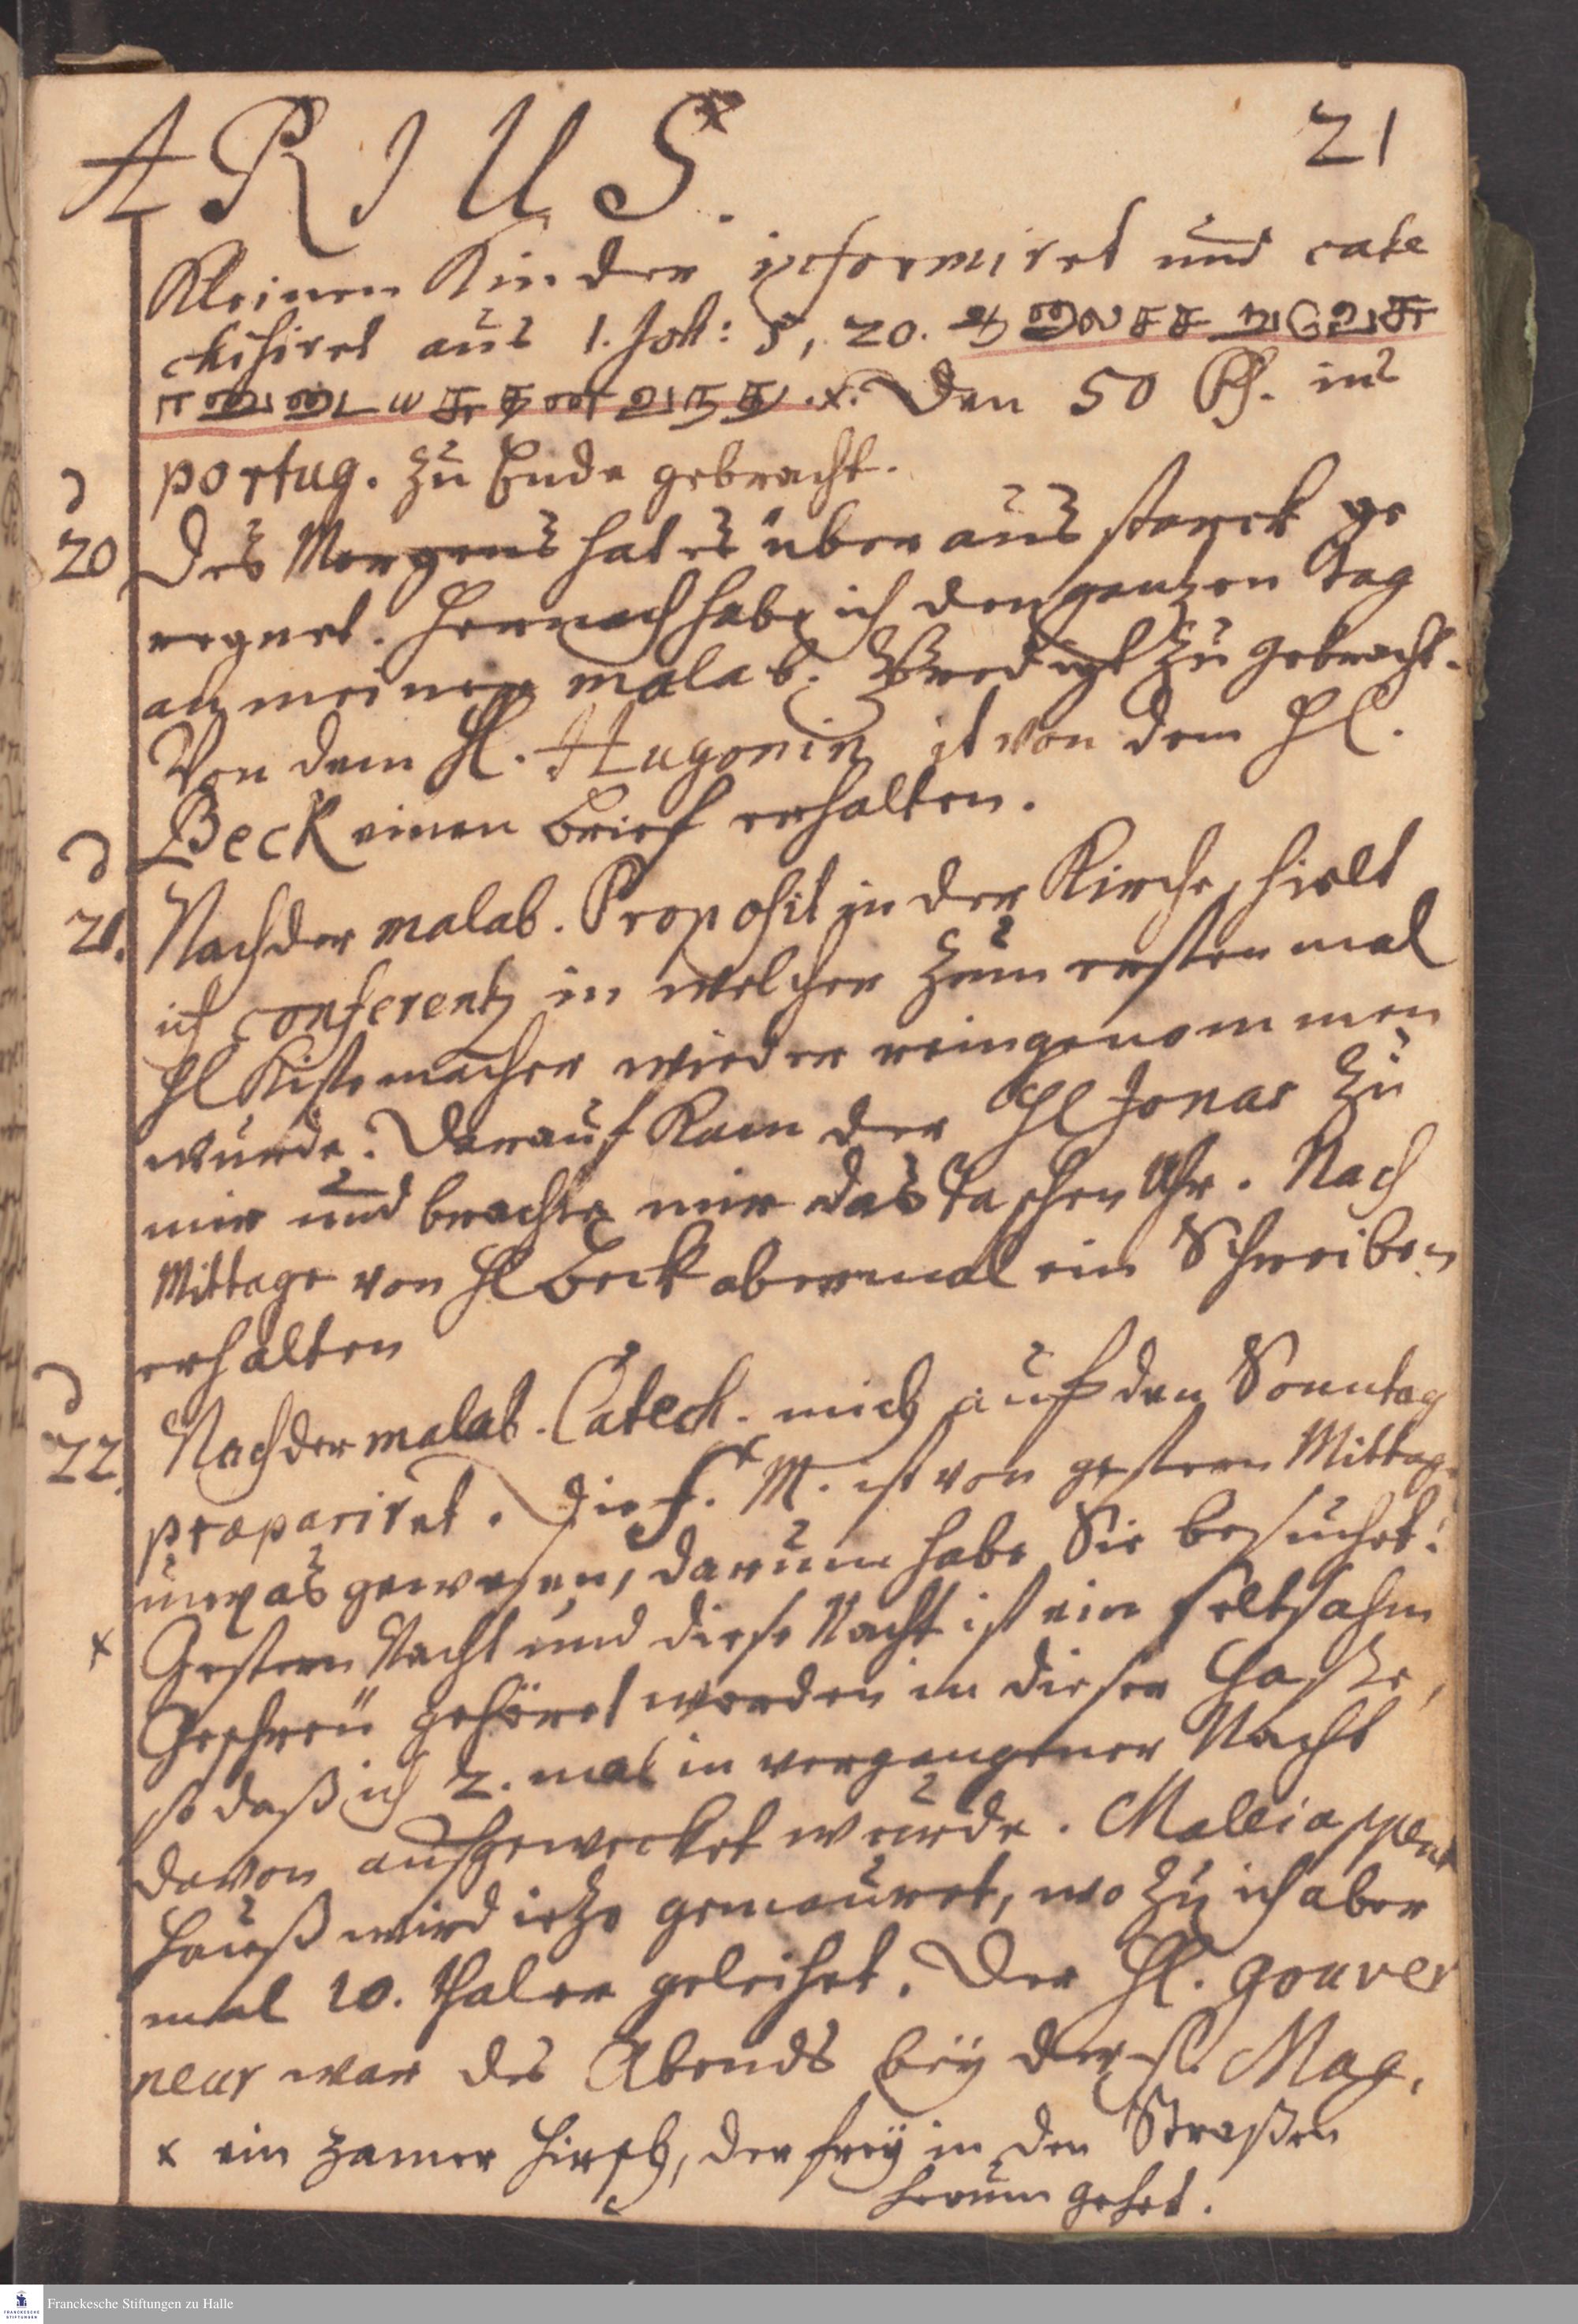 ARIUS.
21
Kleinen Kinder informiret und cate
chisiret aus 1. Joh: 5, 20.
Den 50 Ps. ins
portug. zu Ende gebracht.
20 Des Morgens hat es überaus starck ge
regnet. Hernach habe ich den gantzen Tag
an meiner malab. Predigt zu gebracht.
Von dem H. Hugonin it von dem H.
Beck einen Brief erhalten.
21. Nach der malab. Proposit in der Kirche, hielt
ich conferentz in welcher zum ersten mal
H Kistemacher wieder reingenommen
wurde. Darauf kam der H Jonas zu
mir und brachte mir das Taschen Uhr. Nach
Mittage von H Beck abermal ein Schreiben
erhalten
22. Nach der malab. Catech. mich auf den Sonntag
præpariret. Die f. M. ist von gestern Mittag
unpas gewesen, darum habe Sie besuchet.
x Gestern Nacht und diese Nacht ist ein seltsahm
Geschreÿ gehöret worden in dieser Gasse,
so daß ich 2. mal in vergangener Nacht
davon aufgewecket wurde. Maleiappens
Hauß wird ietzo gemauret, wo zu ich aber
mal 10. Thaler geleihet. Der H. Gouver
neur war des Abends beÿ der f. Mag.
x ein zamer Hirsch, der freÿ in den Straßen
herum gehet.
Franckesche Stiftungen zu Halle